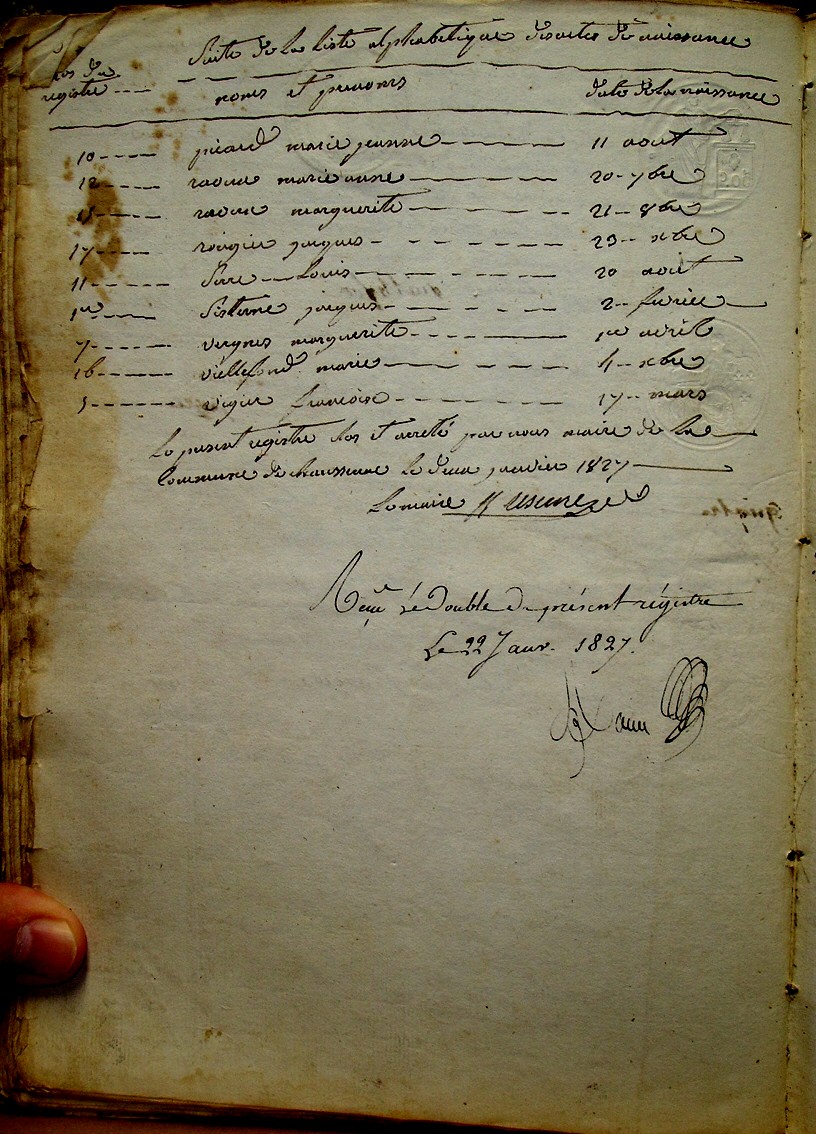 Suite de la liste alphabétique des actes de naissance
nos du registre noms et prenoms date de la naissance
10 picard marie jeanne 11 aout
12 raoux marie anne 20 7bre
15 raoux marguerite 21 8bre
17 rougier jacques 23 xbre
11 Serre Louis 20 aout
1er Sisterne jacques 2 fevrier
7 vergnes marguerite 1er avril
16 villefond marie 4 xbre
5 vigier françoise 17 mars
Le present registre clos et arreté par nous maire de la
Commune de chaussenac le deux janvier 1827
Le maire
Reçu le double du présent régistre
Le 22 Janv. 1827.